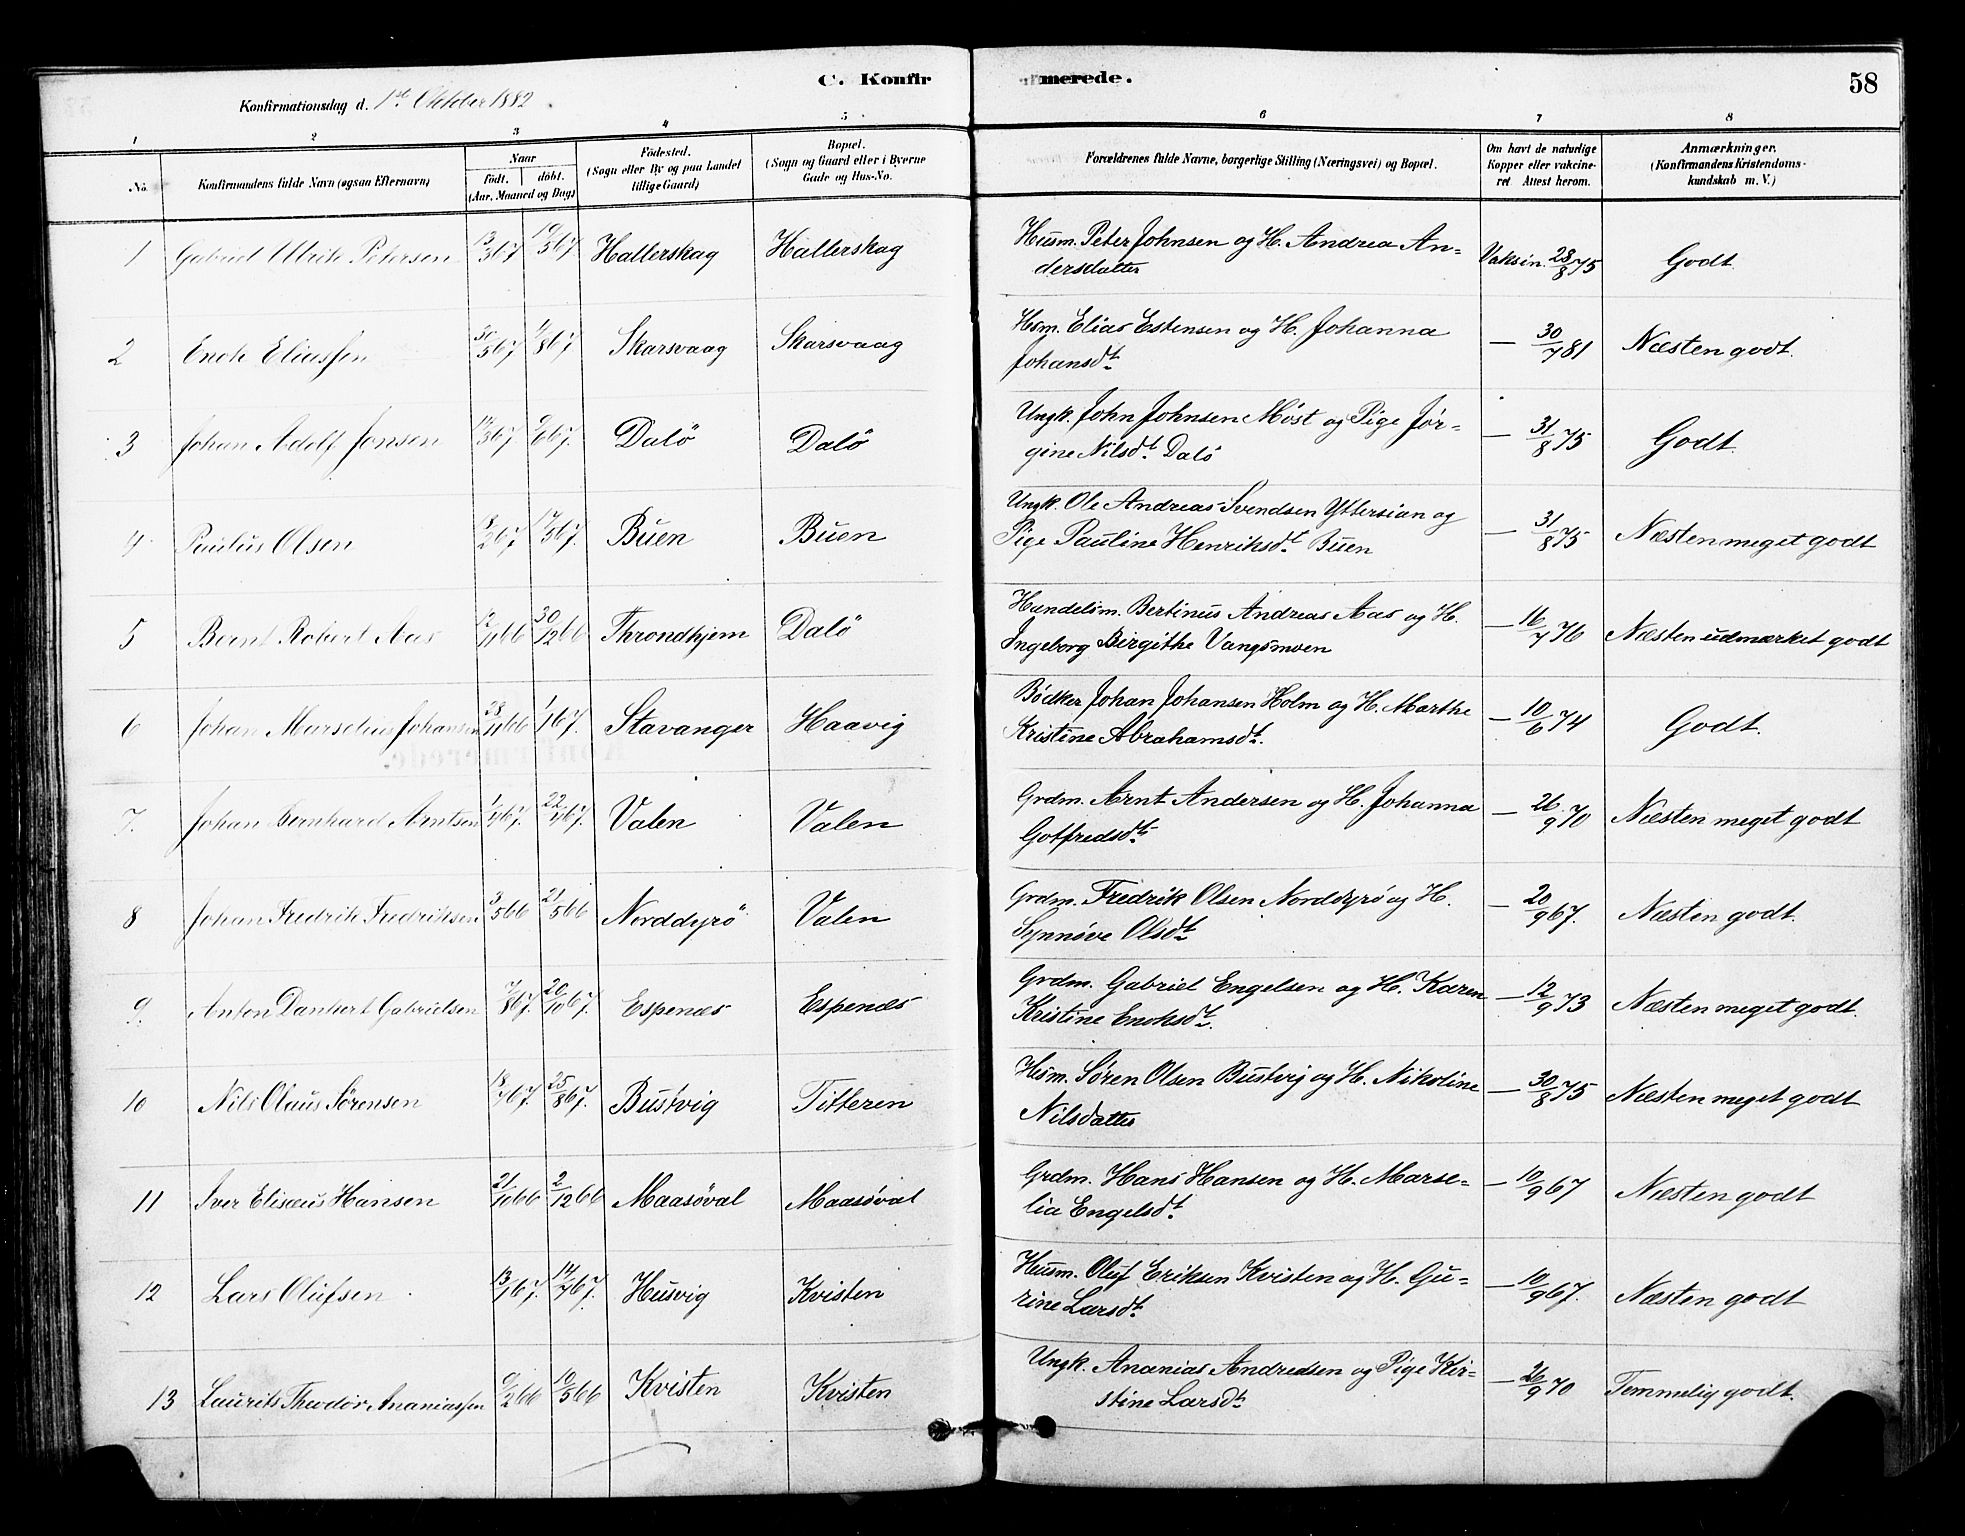 C. Konfir merede. 58
Konfirmationsdag d. 1st Oktober 1882
1 2 3 4 5 6 7 8
No. Konfirmandens fulde Navn (ogsaa Efternavn) Naar födt. döbt. (Aar, Maaned og Dag) Födested. (Sogn eller By og paa Landet tillige Gaard) Bopæl. (Sogn og Gaard eller i Byerne Gade og Hus-No. Forældrenes fulde Navne, borgerlige Stilling (Næringsvei) og Bopæl. Om havt de naturlige Kopper eller vakcineret Attest herom. Anmærkninger. (Konfirmandens Kristendomskundskab m. V.)
1 Gabriel Ulrik Petersen 13/3 67 19/5 67 Hallerskag Hallerskag Husm. Peter Johnsen og H. Andrea An-
dersdatter Vaksin. 28/8 75 Godt.
2 Enok Eliassen 30/5 67 4/8 67 Skarsvaag Skarsvaag Hsm. Elias Estensen og H. Johanna
Johansdt. — 30/7 81 Næsten godt.
3 Johan Adolf Jonsen 67 67. Dalö Dalö Ungk. John Johnsen Möst og Pige Jör-
gine Nilsdt. Dalö — 31/8 75 Godt.
4 Paulus Olsen 67 67. Buen Buen Ungk. Ole Andreas Svendsen Yttersian og
Pige Pauline Henriksdt. Buen — 31/8 75 Næsten meget godt
5 Bernt Robert Aas 11 66 30/12 66 Throndhjem Dalö Handelsm. Bertinus Andreas Aas og H.
Ingeborg Birgithe Vangsmoen — 16/7 76 Næsten udmærket godt
6 Johan Marselius Johansen 28/11 66 1/1 67. Stavanger Haavig Bödker Johan Johansen Holm og H. Marthe
Kristine Abrahamsdt. — 10/6 74 Godt.
7. Johan Bernhard Arntsen 1/4 67. 22/4 67. Valen Valen Grdm. Arnt Andersen og H. Johanna
Gotfredsdt. — 26/9 70 Næsten meget godt
8 Johan Fredrik Fredriksen 3/5 66 21/5 66 Norddyrö Valen Grdm. Fredrik Olsen Norddyrö og H.
Synnöve Olsdt. — 20/9 67. Næsten godt.
9. Anton Dankert Gabrielsen 7/8 67. 20/10 67. Espenæs Espenæs Grdm. Gabriel Engelsen og H. Karen
Kristine Enoksdt. — 12/9 73 Næsten meget godt.
10 Nils Olaus Sörensen 18/7 67. 25/8 67. Bustvig Titteren Hsm. Sören Olsen Bustvig og H. Nikoline
Nilsdatter — 30/8 75 Næsten meget godt
11 Iver Elisæus Hansen 21/10 66 2/12 66 Maasöval Maasöval Grdm. Hans Hansen og H. Marse-
lia Engelsdt. — 10/9 67 Næsten godt
12 Lars Olufsen 13/1 67. 14/4 67. Husvig Kvisten Husm. Oluf Eriksen Kvisten og H. Gu-
rine Larsdt. — 10/9 67. Næsten godt
13 Laurits Theodor Ananiassen 6/2 66 10/5 66 Kvisten Kvisten Ungk. Ananias Andreasen og Pige Kir-
stine Larsdt. — 26/9 70 Temmelig godt.